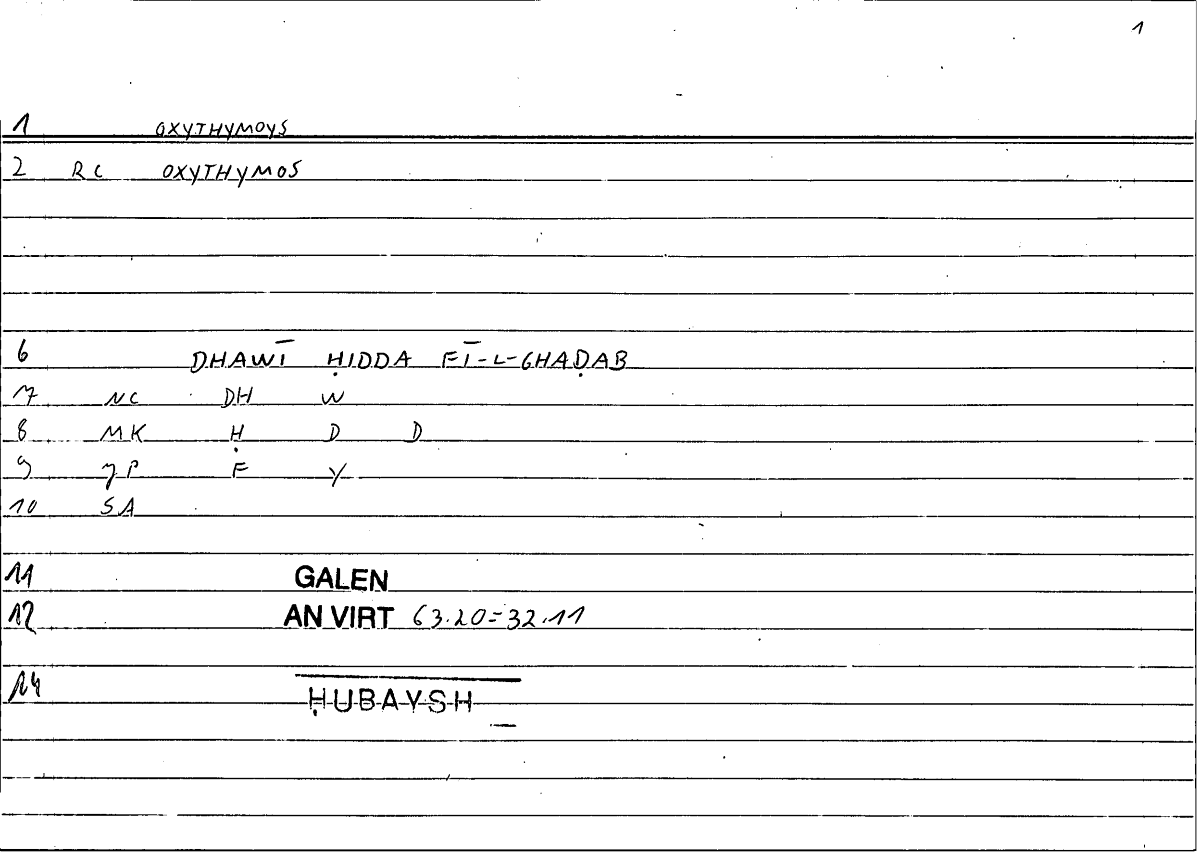 1
1 OXYTHYMOYS
2 RC OXYTHYMOS
6 DHAWĪ ḤIDDA FĪ-L-GHAḌAB
7 NC DH W
8 MK Ḥ D D
9 JP F Y
10 SA
11 GALEN
12 AN VIRT 63.20=32.11
14 ḤUBAYSH